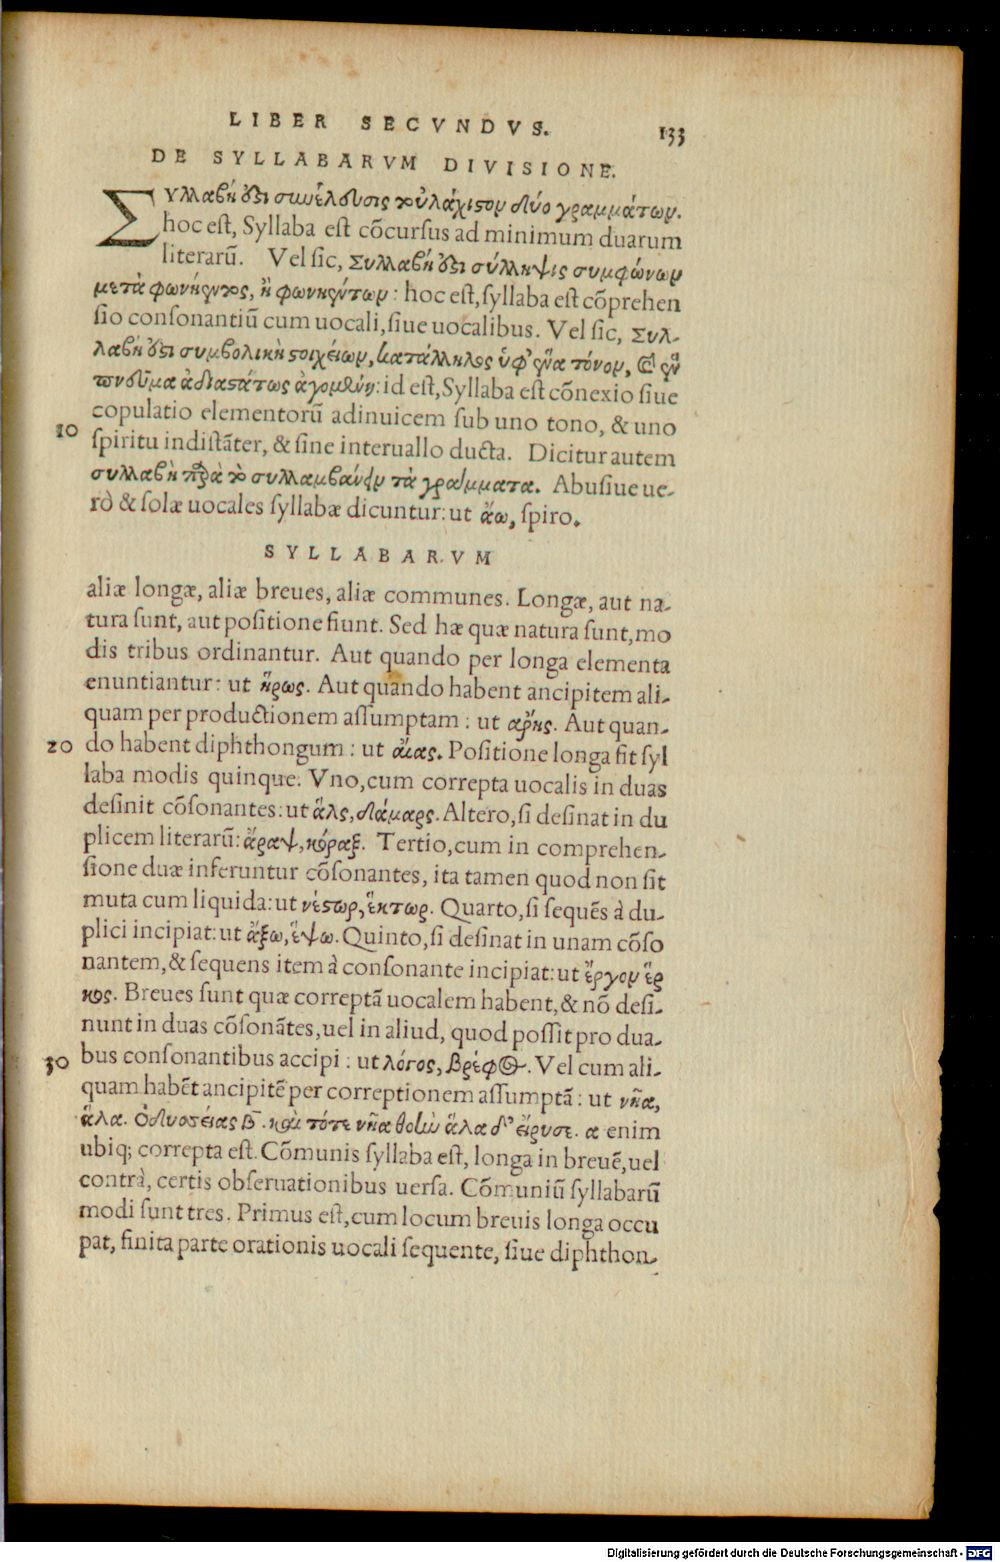 LIBER SECVNDVS. 133
DE SYLLABARVM DIVISIONE.
Συλλαβή ὅτι συνέλευσις τοὐλάχιστον δύο γραμμάτων.
hoc est, Syllaba est cōcursus ad minimum duarum
literarū. Vel sic, Συλλαβή ὅτι σύλληψις συμφώνων
μετὰ φωνήεντος, ἢ φωνηέντων: hoc est, syllaba est cōprehen
sio consonantiū cum uocali, siue uocalibus. Vel sic, Συλ-
λαβή ὅτι συμβολικὴ στοιχείων, κατάλληλος ὑφ' ἕνα τόνον, καὶ ἓν
πνεῦμα ἀδιαστάτως ἀγομένη: id est, Syllaba est cōnexio siue
copulatio elementorū adinuicem sub uno tono, & uno
10 spiritu indistāter, & sine interuallo ducta. Dicitur autem
συλλαβὴ παρὰ τὸ συλλαμβάνειν τὰ γράμματα. Abusiue ue-
rò & solæ uocales syllabæ dicuntur: ut ἄω, spiro.
SYLLABARVM
aliæ longæ, aliæ breues, aliæ communes. Longæ, aut na-
tura sunt, aut positione fiunt. Sed hæ quæ natura sunt, mo
dis tribus ordinantur. Aut quando per longa elementa
enuntiantur: ut ἥρως. Aut quando habent ancipitem ali-
quam per productionem assumptam: ut ἄρης. Aut quan-
20 do habent diphthongum: ut αἴας. Positione longa fit syl
laba modis quinque. Vno, cum correpta uocalis in duas
desinit cōsonantes: ut ἅλς, δάμαρς. Altero, si desinat in du
plicem literarū: ἄραψ, κόραξ. Tertio, cum in comprehen-
sione duæ inferuntur cōsonantes, ita tamen quod non sit
muta cum liquida: ut νέστωρ, ἕκτωρ. Quarto, si sequēs à du-
plici incipiat: ut ἄξω, ἕψω. Quinto, si desinat in unam cōso
nantem, & sequens item à consonante incipiat: ut ἔργον ἕρ
κος. Breues sunt quæ correptā uocalem habent, & nō desi-
nunt in duas cōsonātes, uel in aliud, quod possit pro dua-
30 bus consonantibus accipi: ut λόγος, βρέφος. Vel cum ali-
quam habēt ancipitē per correptionem assumptā: ut νῆα,
ἅλα. Ὀδυσσείας β̄. καὶ τότε νῆα θοὴν ἅλα δ' εἴρυσε. α enim
ubiq; correpta est. Cōmunis syllaba est, longa in breuē, uel
contrà, certis obseruationibus uersa. Cōmuniū syllabarū
modi sunt tres. Primus est, cum locum breuis longa occu
pat, finita parte orationis uocali sequente, siue diphthon-
Digitalisierung gefördert durch die Deutsche Forschungsgemeinschaft - DFG